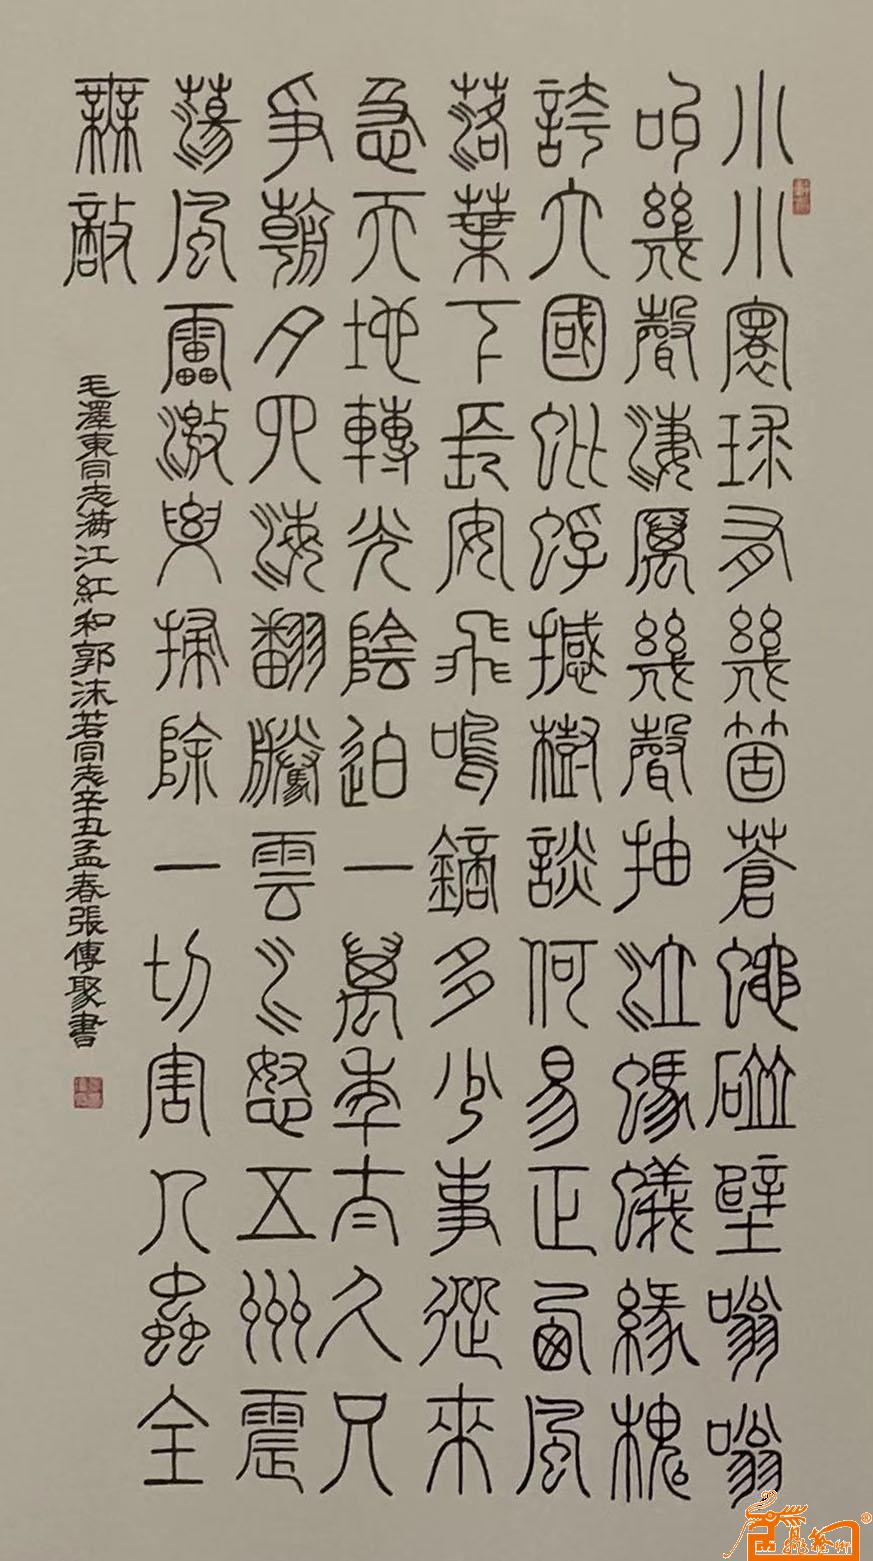 小小寰球有幾箇蒼蠅碰壁嗡嗡
叫幾聲淒厲幾聲抽泣螞蟻緣槐
誇大國蚍蜉撼樹談何易正西風
落葉下長安飛鳴鏑多少事從來
急天地轉光陰迫一萬年太久只
爭朝夕四海翻騰雲水怒五州震
蕩風雷激要掃除一切害人蟲全
無敵
毛澤東同志满江紅和郭沫若同志辛丑孟春張傳聚書